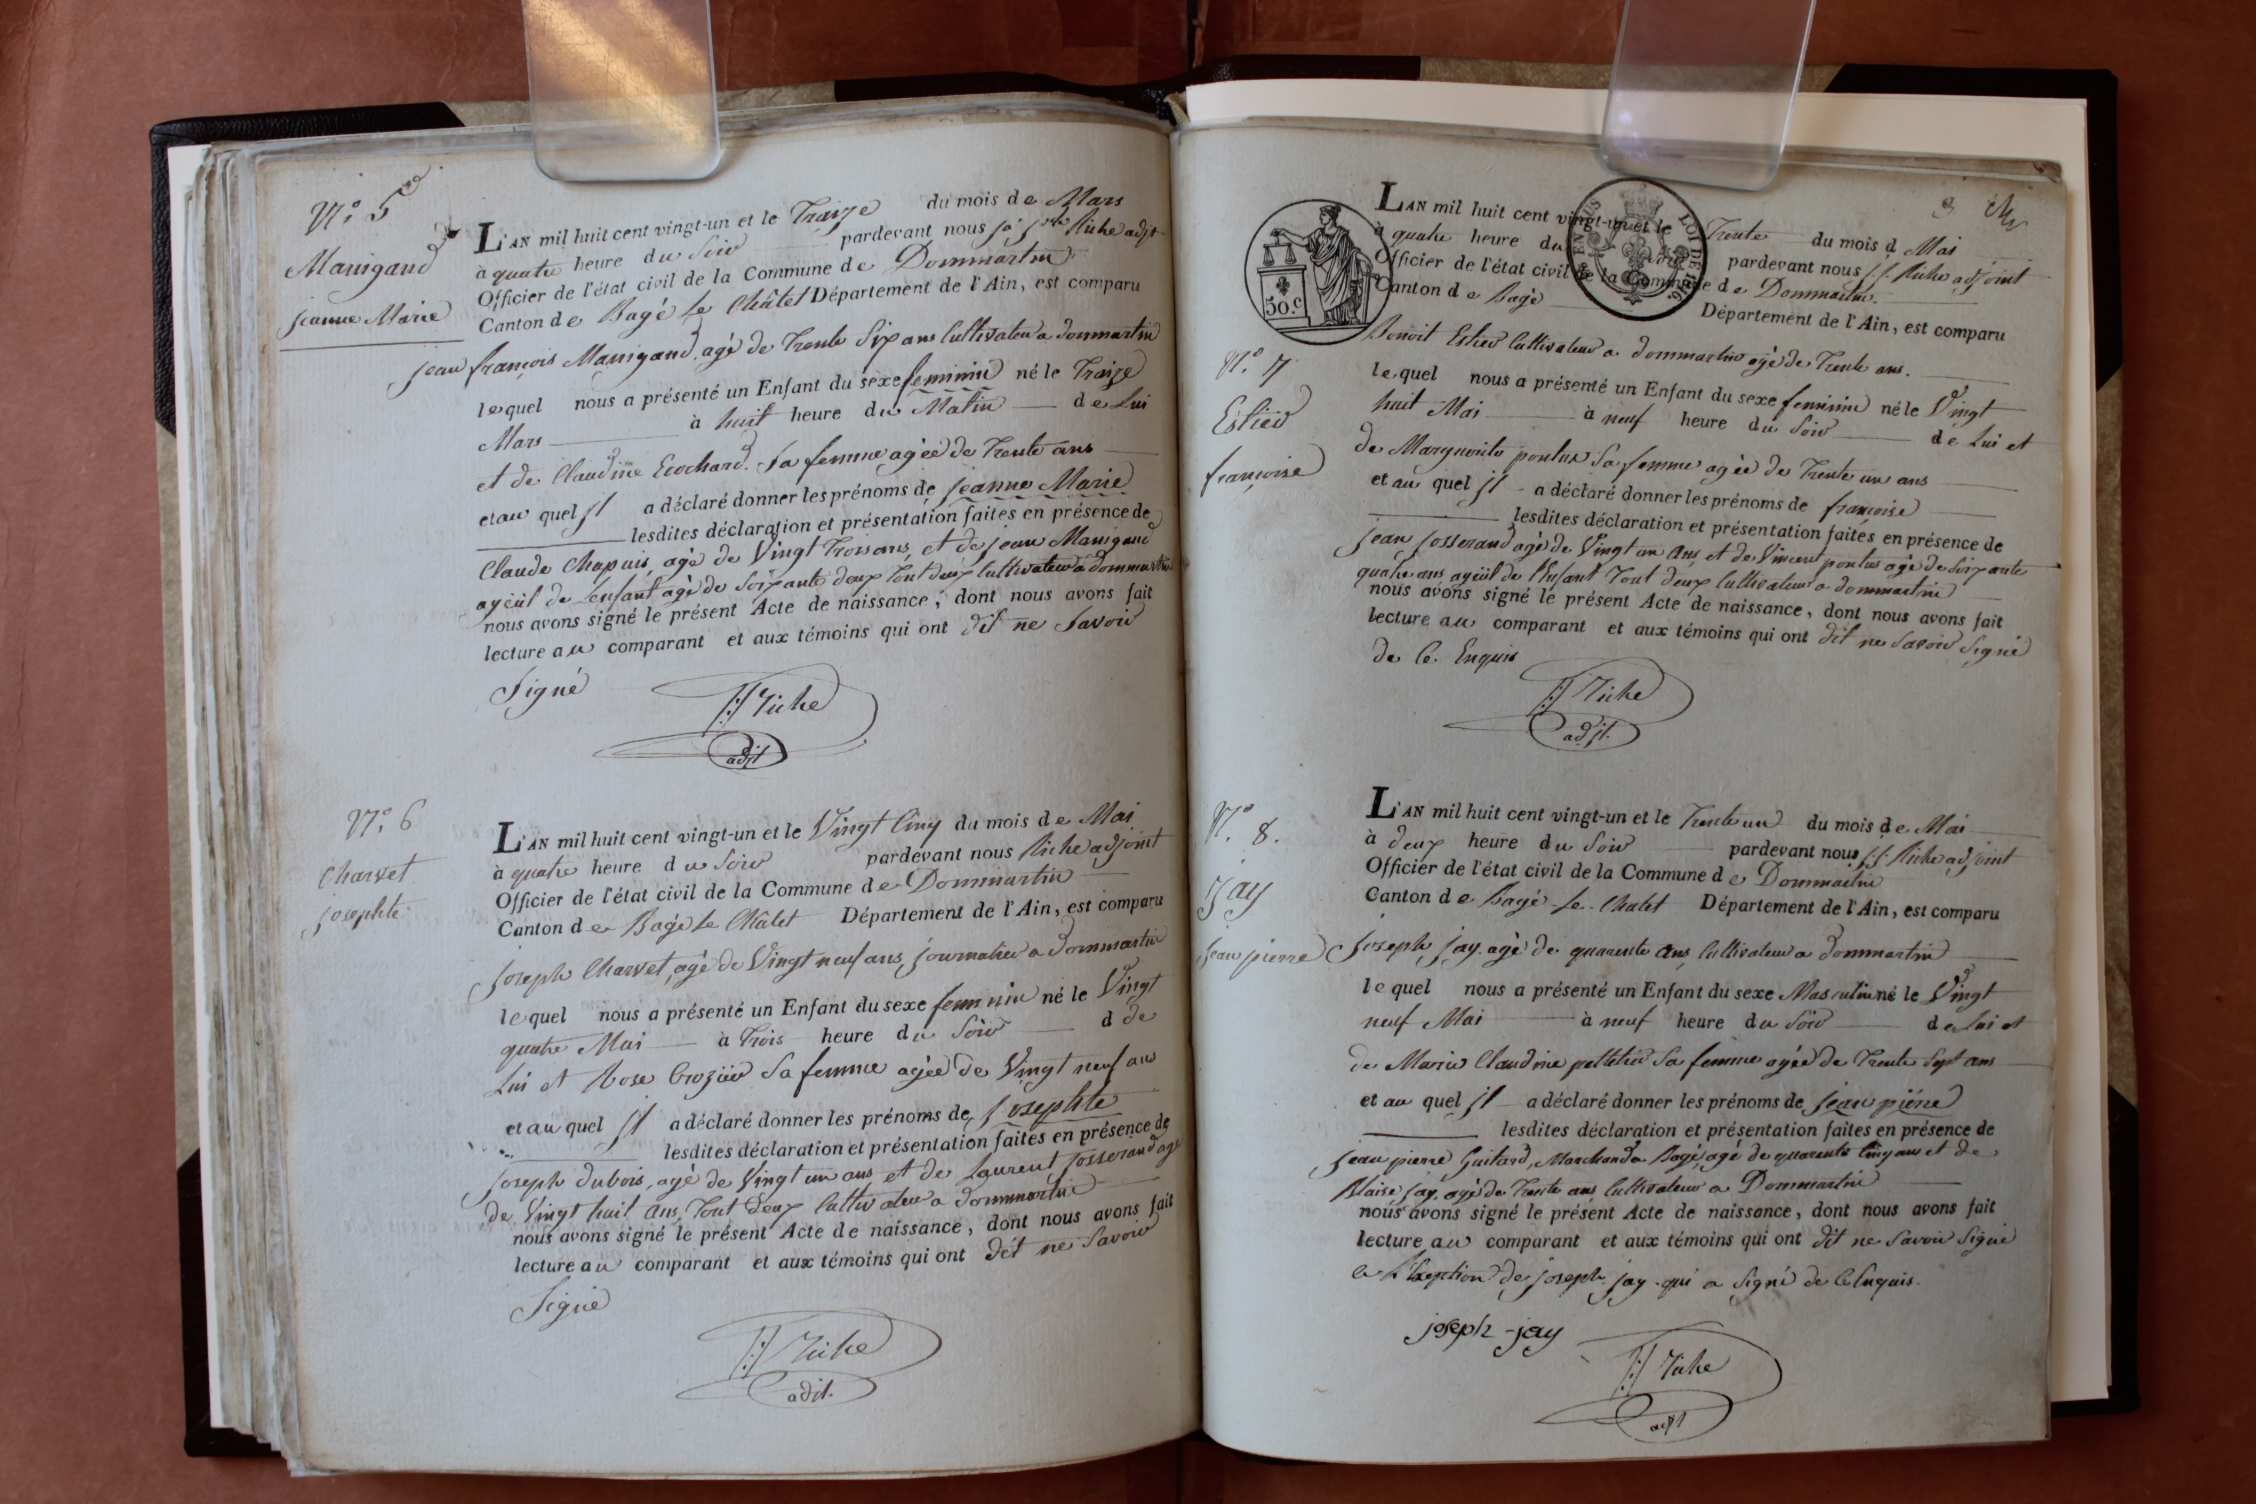 N°. 5
Manigand
jeanne Marie
L'AN mil huit cent vingt-un et le Traize du mois de Mars
à quatre heure du Soir pardevant nous Riche adjt
Officier de l'état civil de la Commune de Dommartin
Canton de Bagé le Châtel Département de l'Ain, est comparu
jean françois Manigand, agé de Trente Six ans Cultivateur a dommartin
lequel nous a présenté un Enfant du sexe feminin né le Traize
Mars à huit heure du Matin de Lui
et de Claudine Ecochard Sa femme agée de Trente ans
et au quel jl a déclaré donner les prénoms de jeanne Marie
lesdites déclaration et présentation faites en présence de
Claude Chapuis, agé de Vingt Trois ans, et de jean Manigand
ayeül de Lenfant agé de Soixante deux Tout deux Cultivateur a dommartin
nous avons signé le présent Acte de naissance, dont nous avons fait
lecture au comparant et aux témoins qui ont dit ne Savoir
Signé
Riche
adjt
N°. 6
Charvet
josephte
L'AN mil huit cent vingt-un et le Vingt Cinq du mois de Mai
à quatre heure du Soir pardevant nous Riche adjoint
Officier de l'état civil de la Commune de Dommartin
Canton de Bagé le Châlet Département de l'Ain, est comparu
joseph Charvet, agé de Vingt neuf ans, journalier a Dommartin
lequel nous a présenté un Enfant du sexe feminin né le Vingt
quatre Mai à Trois heure du Soir d de
Lui et Rose Crozier Sa femme agée de Vingt neuf an
et au quel jl a déclaré donner les prénoms de josephte
lesdites déclaration et présentation faites en présence de
joseph dubois, agé de Vingt un ans, et de Laurent josserand agé
de Vingt huit ans, Tout deux Cultivateur a dommartin
nous avons signé le présent Acte de naissance, dont nous avons fait
lecture au comparant et aux témoins qui ont dit ne Savoir
Signé
Riche
adjt.
9
50.c
LOI DE 1816.
L'AN mil huit cent vingt-un et le Trente du mois d Mai
à quatre heure du Soir pardevant nous j.j. Riche adjoint
Officier de l'état civil de la Commune de Dommartin.
Canton de Bagé Département de l'Ain, est comparu
N°. 7
Estier
françoise
Benoit Estier Cultivateur a dommartin agé de Trente ans.
lequel nous a présenté un Enfant du sexe feminin né le Vingt
huit Mai à neuf heure du Soir de Lui et
de Marguerite pontus Sa femme agée de Trente un ans
et au quel jl a déclaré donner les prénoms de françoise
lesdites déclaration et présentation faites en présence de
jean josserand agé de Vingt un ans, et de Vincent pontus agé de Soixante
quatre ans ayeül de l'Enfant Tout deux Cultivateur a dommartin
nous avons signé le présent Acte de naissance, dont nous avons fait
lecture au comparant et aux témoins qui ont dit ne Savoir Signé
de Ce. Enquis
Riche
adjt.
N°. 8.
jay
jean pierre
L'AN mil huit cent vingt-un et le Trente un du mois de Mai
à deux heure du Soir pardevant nous j.j. Riche adjoint
Officier de l'état civil de la Commune de Dommartin
Canton de Bagé-le-Chalet Département de l'Ain, est comparu
joseph jay. agé de quarente ans, Cultivateur a dommartin
lequel nous a présenté un Enfant du sexe Masculin né le Vingt
neuf Mai à neuf heure du Soir de Lui et
de Marie Claudine pelletier Sa femme agée de Trente Sept ans
et au quel jl a déclaré donner les prénoms de jean pierre
lesdites déclaration et présentation faites en présence de
jean pierre Guitard, Marchand a Bagé, agé de quarente Cinq ans et de
Blaise jay, agé de Trente ans Cultivateur a Dommartin
nous avons signé le présent Acte de naissance, dont nous avons fait
lecture au comparant et aux témoins qui ont dit ne Savoir Signé
a L'Exeption de joseph jay qui a Signé de Ce Enquis.
joseph-jay
Riche
adjt